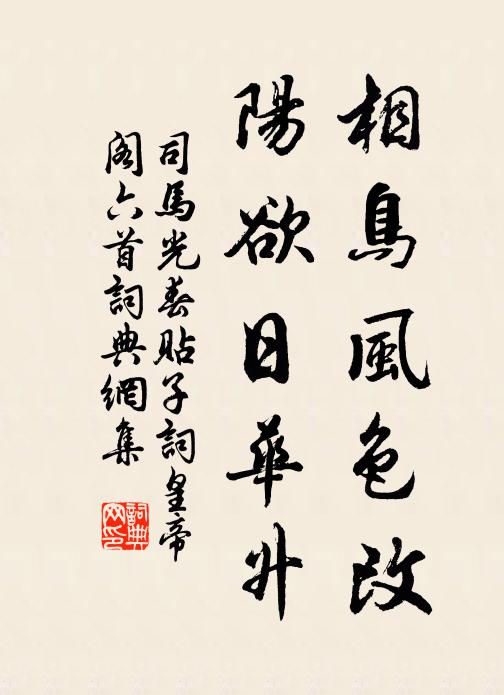 相烏風色改
陽欲日華升
司馬光春貼子詞皇帝
閣六首詞典網集
詞典
网印